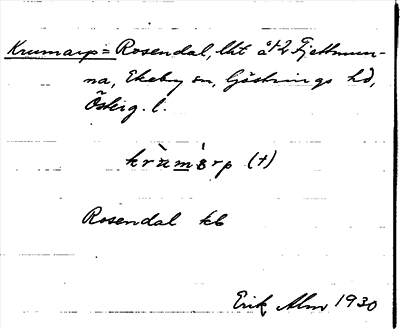 Krumarp = Rosendal, lht å 1/2 Fjettmun-
na, Ekeby sn, Göstrings hd,
Österg. l.
kr̀ɯmárp (+)
Rosendal kb
Erik Alm 1930